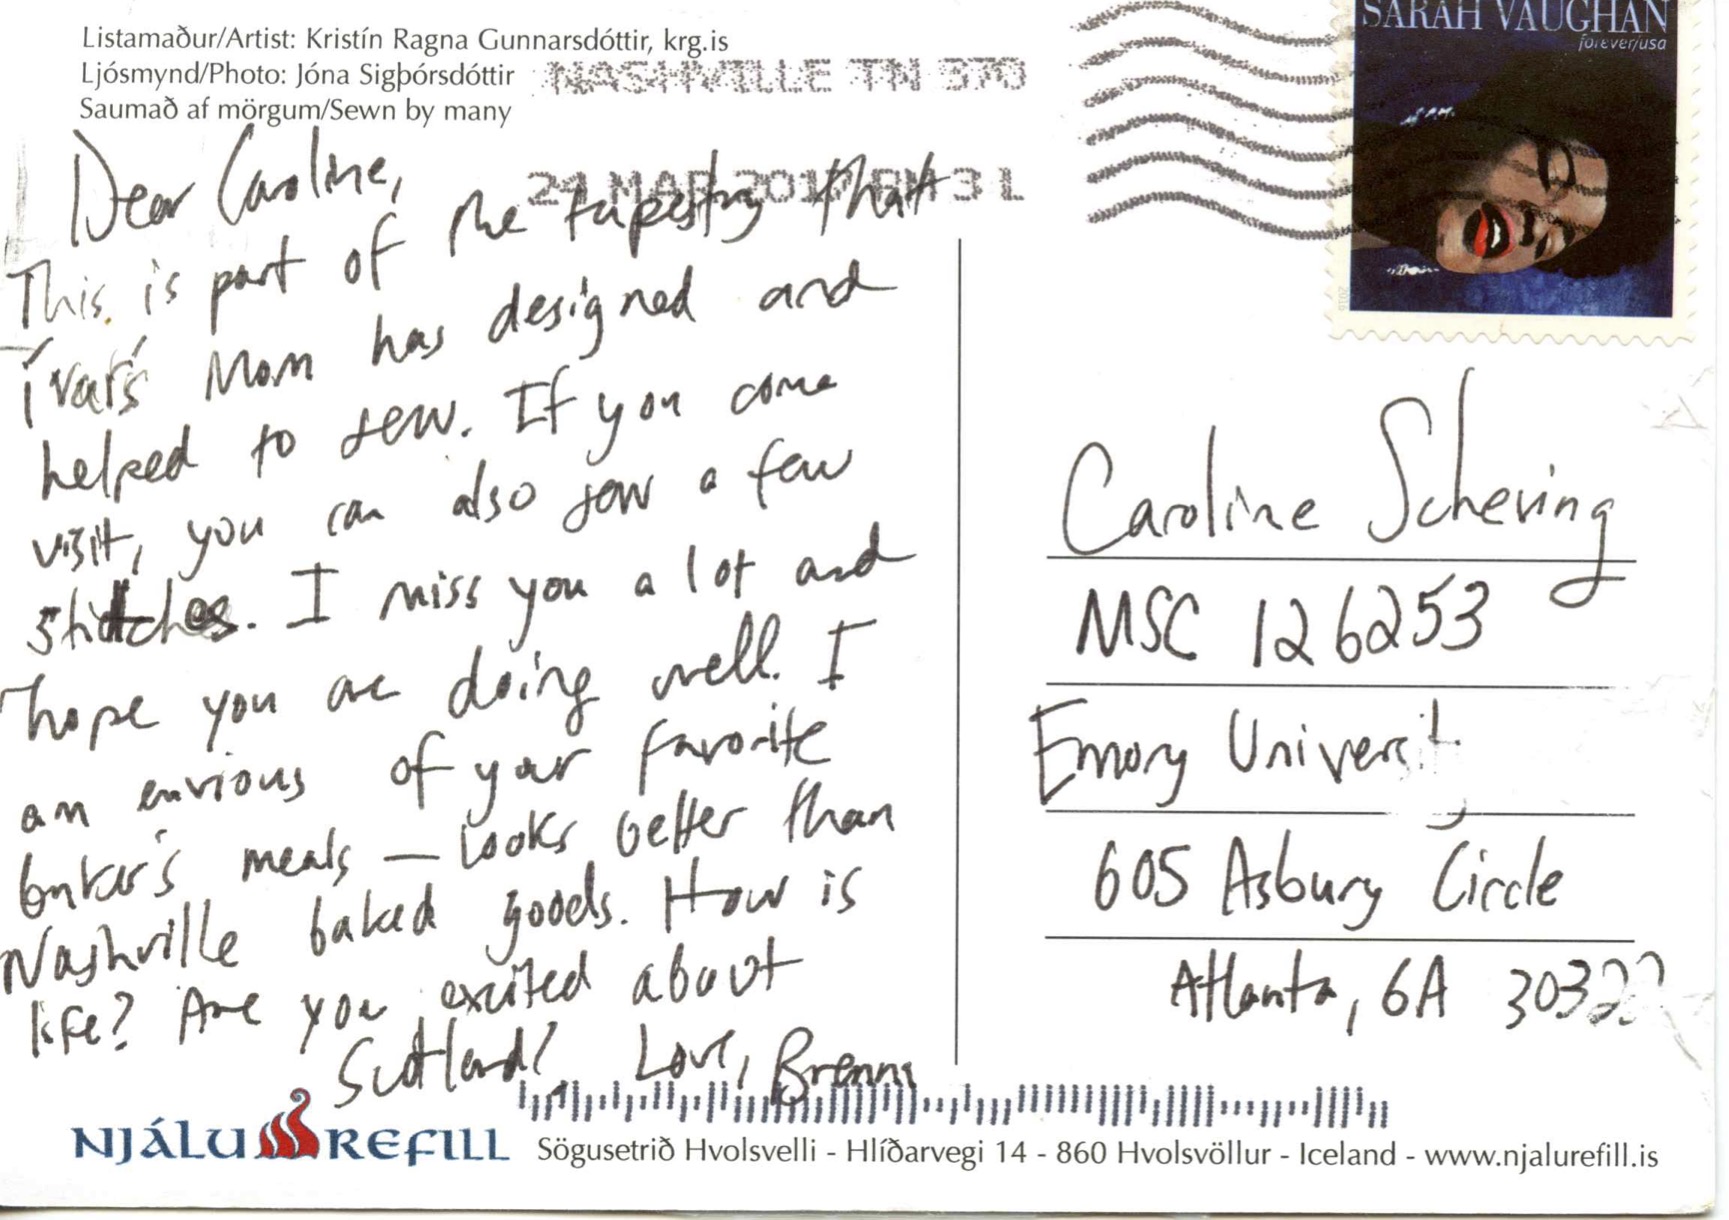 Listamaður/Artist: Kristín Ragna Gunnarsdóttir, krg.is
Ljósmynd/Photo: Jóna Sigþórsdóttir
Saumað af mörgum/Sewn by many
NASHVILLE TN 370
24 MAR 201 PM 3 L
SARAH VAUGHAN
forever/usa
Dear Caroline,
This is part of the tapestry that
Ívar's Mom has designed and
helped to sew. If you come
visit, you can also sew a few
stitches. I miss you a lot and
hope you are doing well. I
am envious of your favorite
meals — looks better than
Nashville baked goods. How is
life? Are you excited about
Scotland? Love, Brenna
Caroline Scheving
MSC 126253
Emory University
605 Asbury Circle
Atlanta, GA 30322
NJÁLU REFILL
Sögusetrið Hvolsvelli - Hlíðarvegi 14 - 860 Hvolsvöllur - Iceland - www.njalurefill.is